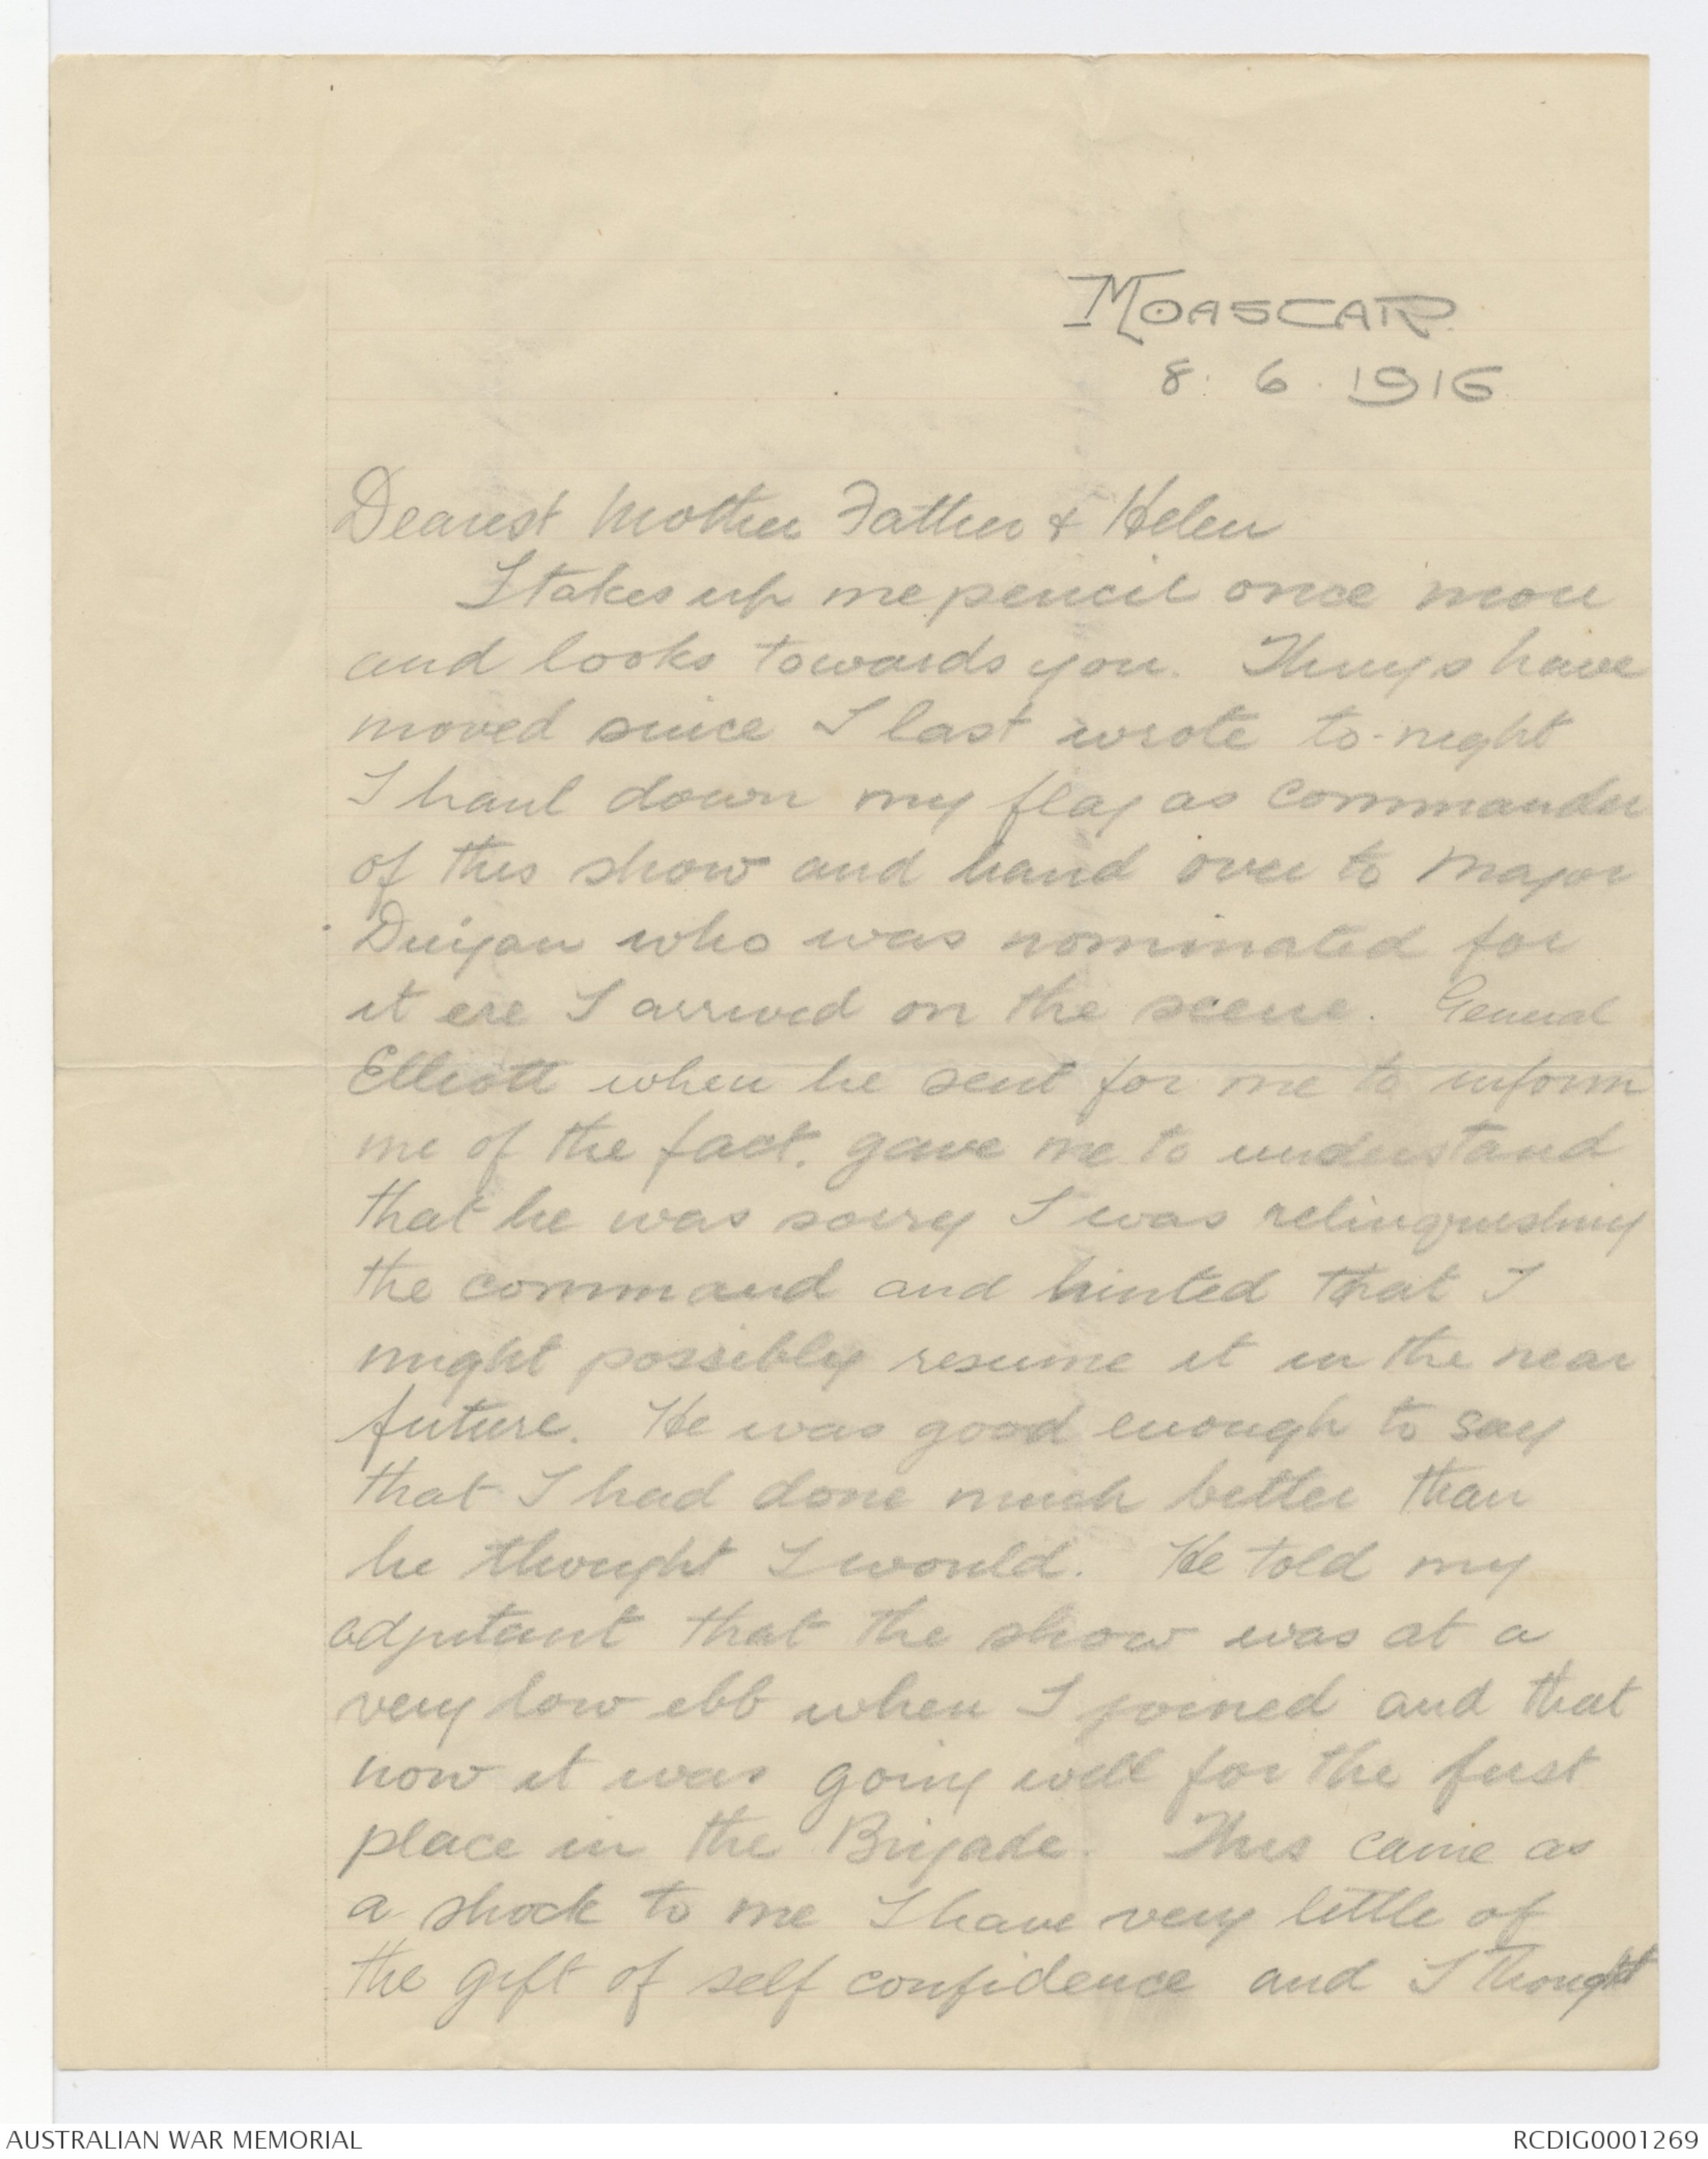 MOASCAR.
8. 6. 1916
Dearest Mother Father & Helen
I takes up me pencil once more
and looks towards you. Things have
moved since I last wrote to-night
I haul down my flag as commander
of this show and hand over to Major
Duigan who was nominated for
it ere I arrived on the scene. General
Elliott when he sent for me to inform
me of the fact, gave me to understand
that he was sorry I was relinquishing
the command and hinted that I
might possibly resume it in the near
future. He was good enough to say
that I had done much better than
he thought I would. He told my
adjutant that the show was at a
very low ebb when I joined and that
now it was going well for the first
place in the Brigade. This came as
a shock to me I have very little of
the gift of self confidence and I thought
AUSTRALIAN WAR MEMORIAL
RCDIG0001269